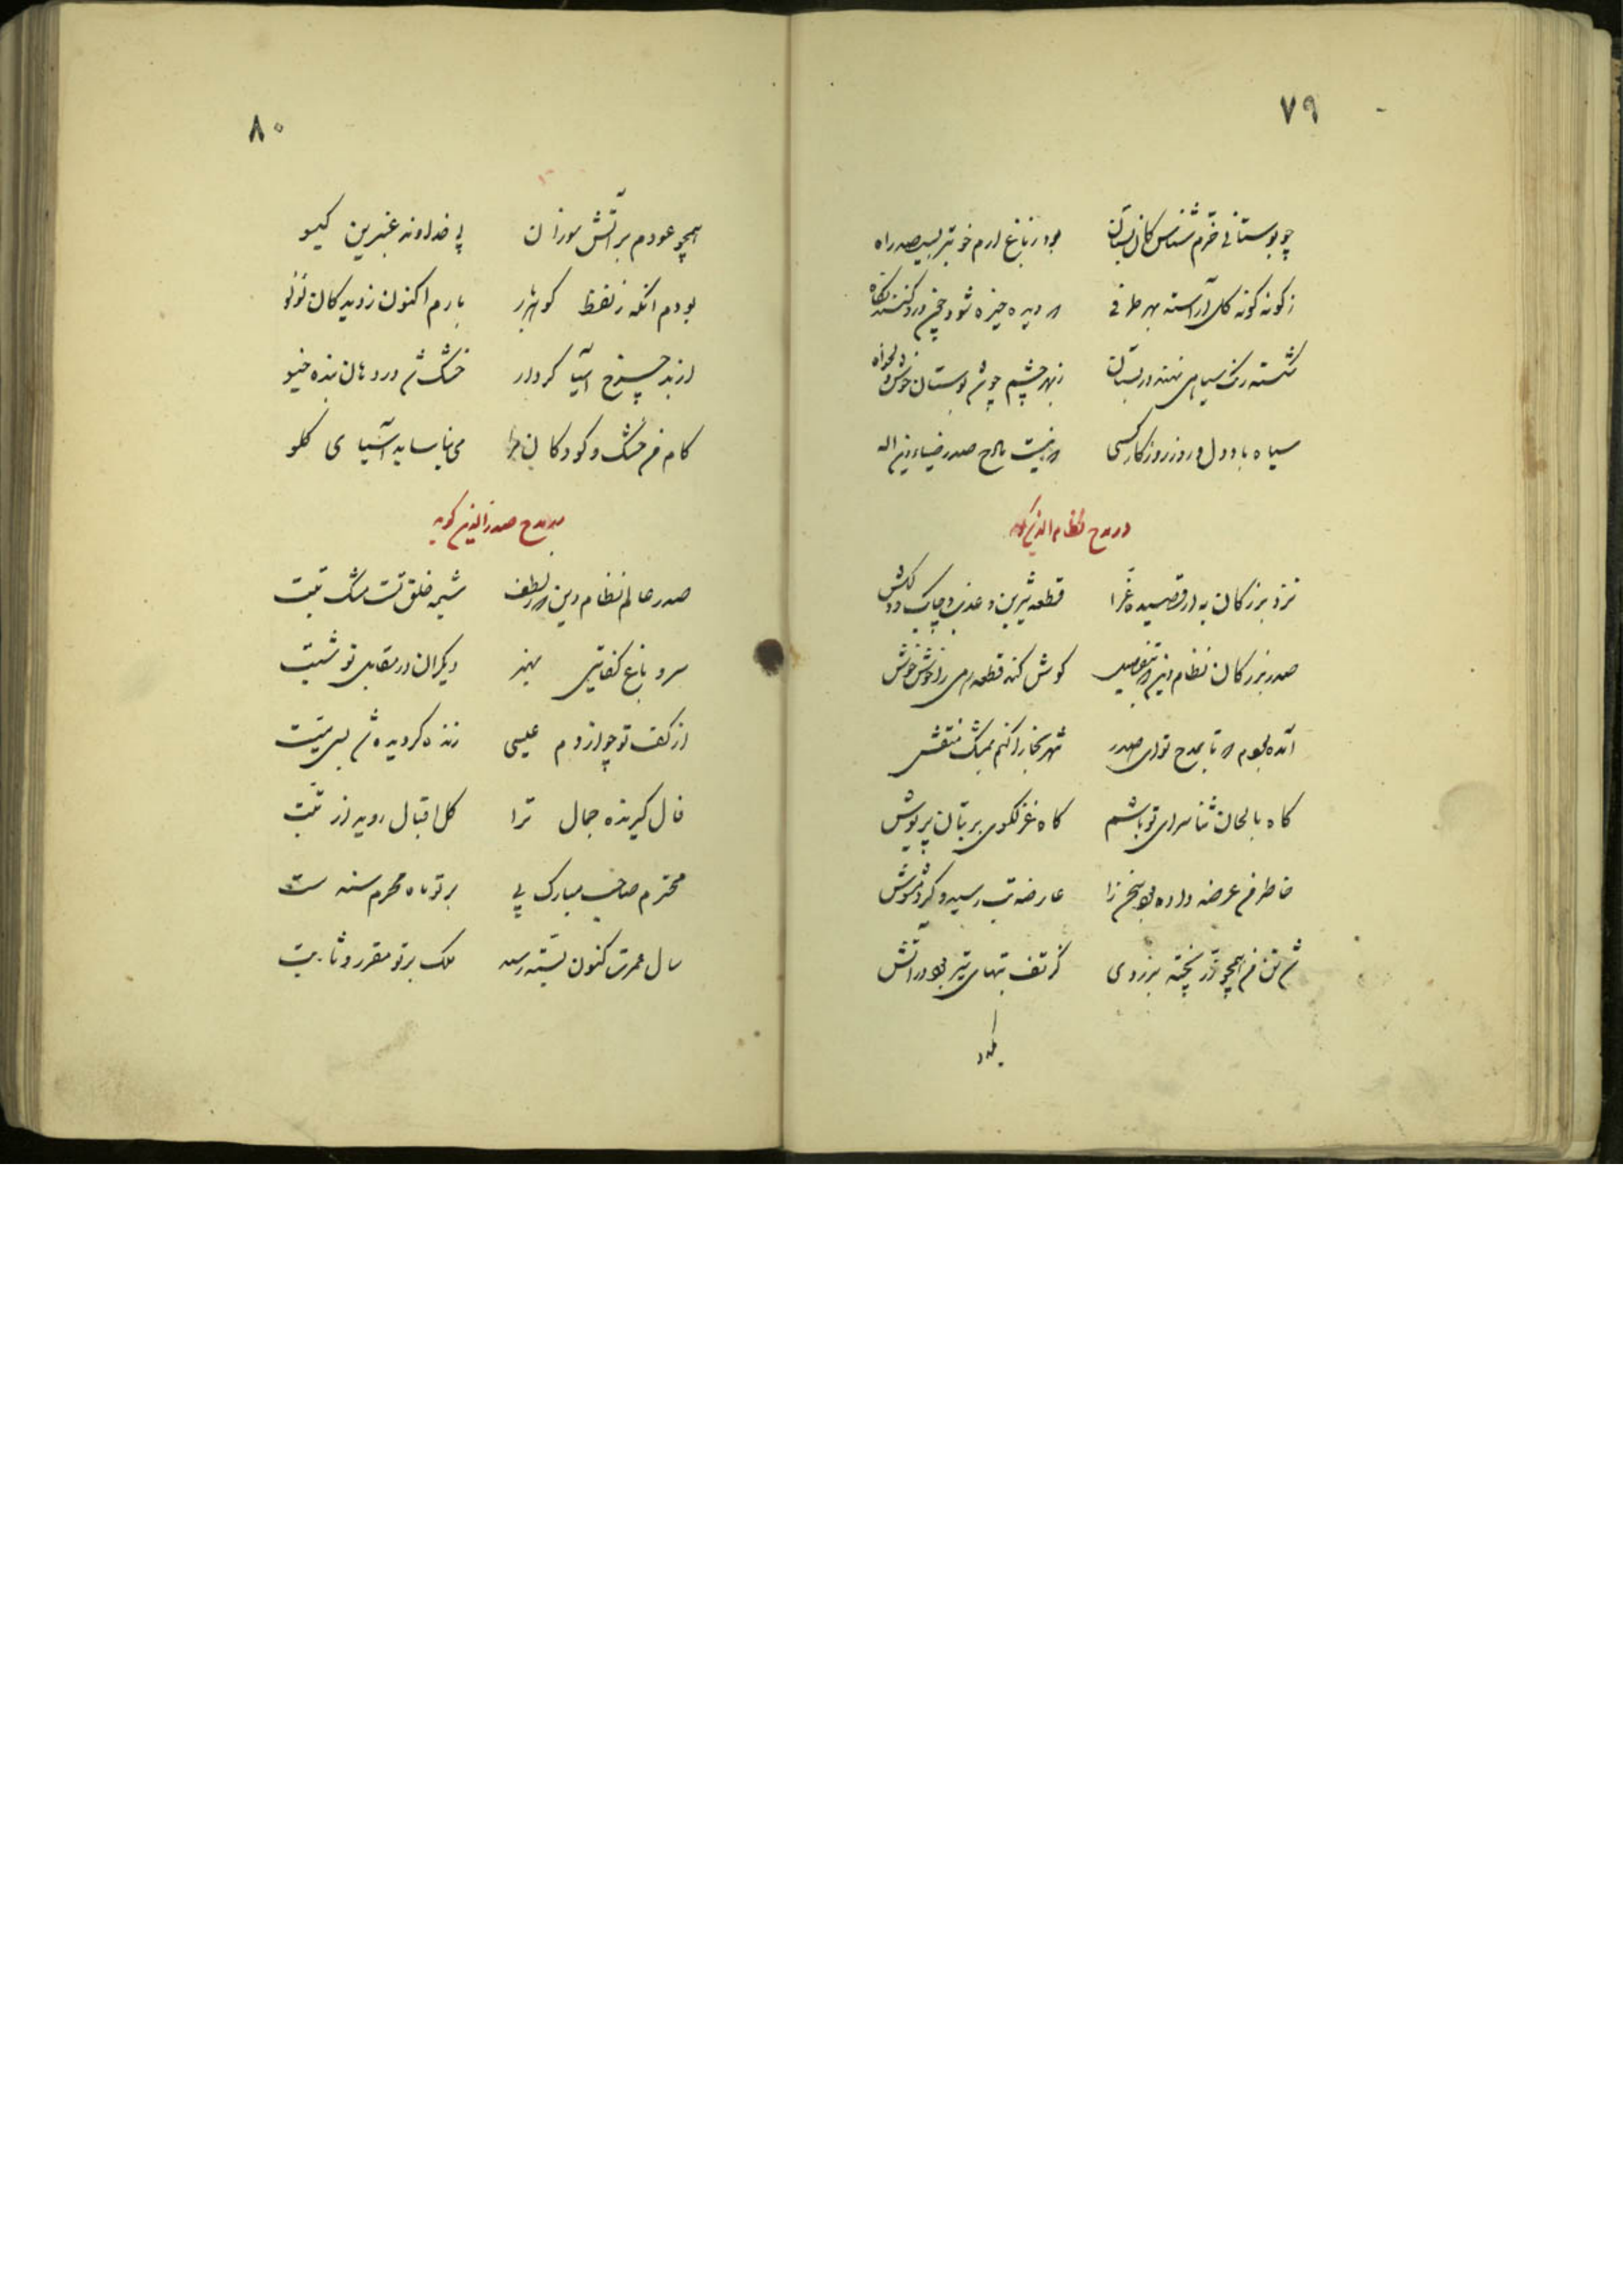 ۷۹
چو بوستانی خرم شناس کان بستان بود ز باغ ارم خوبتر بسیصد راه
ز گونه گونه گل آراسته بهر طرفی که دیده خیره شود چون درو کنند نگاه
شکسته رنگ سیاهی نهند در بستان ز بهر چشم چو شد بوستان خوش و دلخواه
سیاه بادا دل و روز و روزگار کسی که نیست مادح صدر ضیاء دین اله
در مدح نظام الدین گوید
نزد بزرگان به از قصیده غرا قطعه شیرین و عذب و چابک و دلکش
صدر بزرگان نظام دین که بتفضیل گوش کند قطعه رهی را خوش خوش
آمده بودم که تا بمدح تو ای صدر شهر بخارا کنم بمشک منقش
گاه بالحان ثنا سرای تو باشم گاه غزلگوی بر بتان پریوش
خاطر من عرضه داده بود سخن را عارضه تب رسید و کرد مشوش
شد تن من همچو زر پخته بزردی کز تف تبهای تیز بود در آتش
۸۰
همچو عودم بر آتش سوزان بی خداوند عنبرین گیسو
بودم آنکه ز لفظ گوهربار بارم اکنون ز دیدگان لؤلؤ
از بد چرخ آسیا کردار خشک شد در دهان بنده خیو
کام من خشک و کودکان مرا می نیاساید آسیای گلو
بمدح صدرالدین گوید
صدر عالم نظام دین کز لطف شیمه خلق تست مشک تبت
سرو باغ کفایتی بهنر دیگران در مقابل تو شبت
از کف تو چو از دم عیسی زنده گردیده شد بسی میت
فال گیرنده جمال ترا گل اقبال روید از تبت
محترم صاحب مبارک پی بر تو ماه محرم سنه ست
سال عمرت کنون بسته رسد ملک بر تو مقرر و ثابت